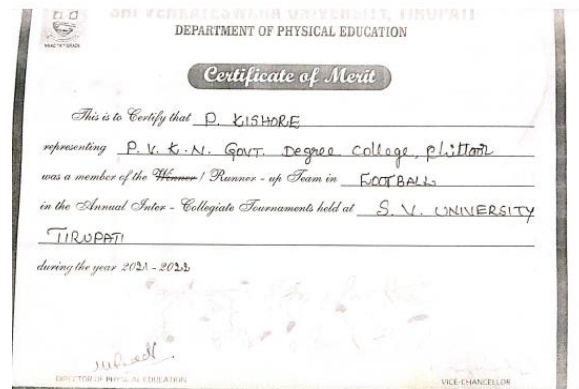 SRI VENKATESWARA UNIVERSITY, TIRUPATI
DEPARTMENT OF PHYSICAL EDUCATION
Certificate of Merit
This is to Certify that P. KISHORE
representing P. V. K. N. GOVT. Degree college,
was a member of the Winner / Runner - up Team in FOOTBALL
in the Annual Inter - Collegiate Tournaments held at S. V. UNIVERSITY
TIRUPATI
during the year 2021 - 2022
DIRECTOR OF PHYSICAL EDUCATION
VICE-CHANCELLOR